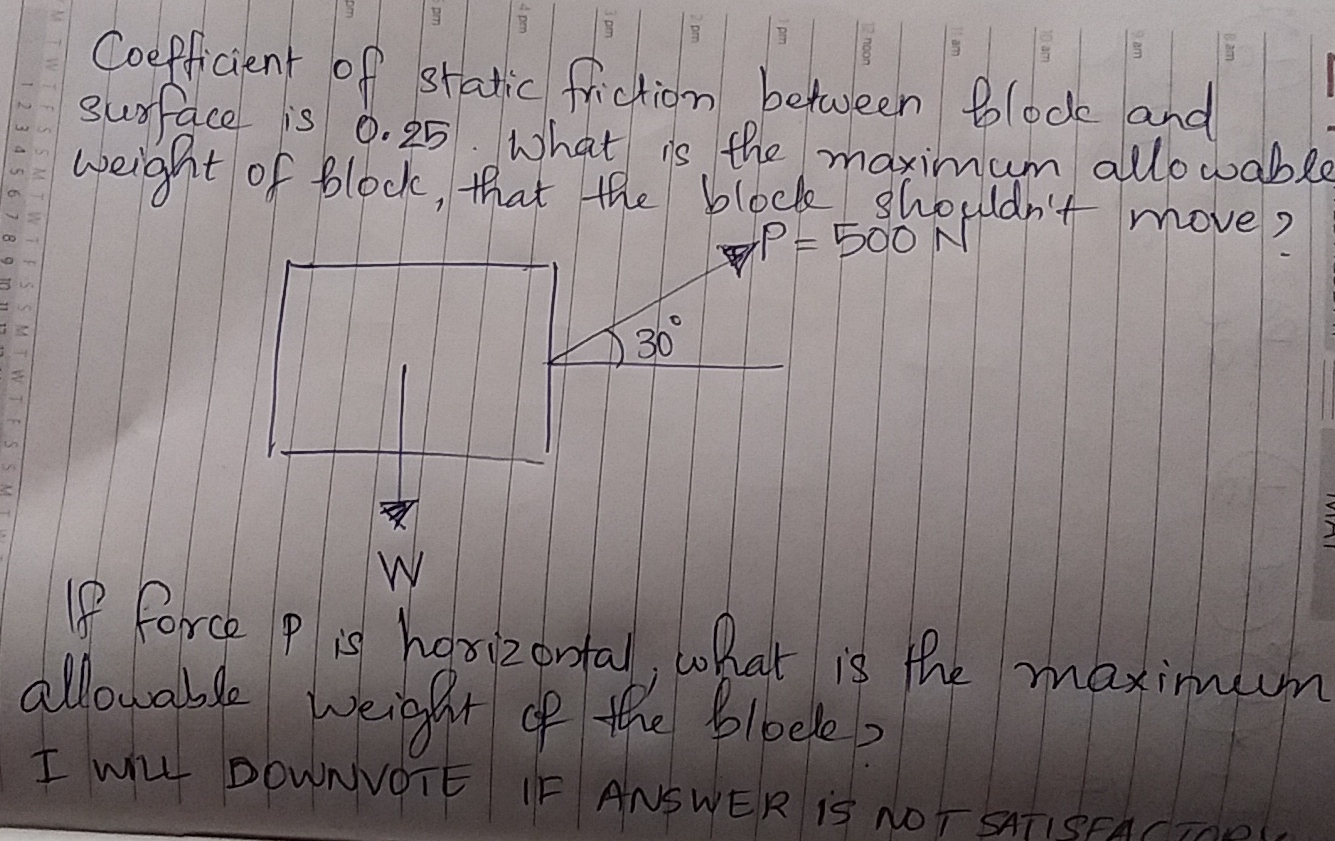 Coefficient of static friction between block and
surface is 0.25. What is the maximum allowable
weight of block, that the block shouldn't move?
P = 500 N
30°
W
If force P is horizontal, what is the maximum
allowable weight of the block?
I WILL DOWNVOTE IF ANSWER IS NOT SATISFACTORY
5 pm
4 pm
3 pm
2 pm
1 pm
12 noon
11 am
10 am
9 am
8 am